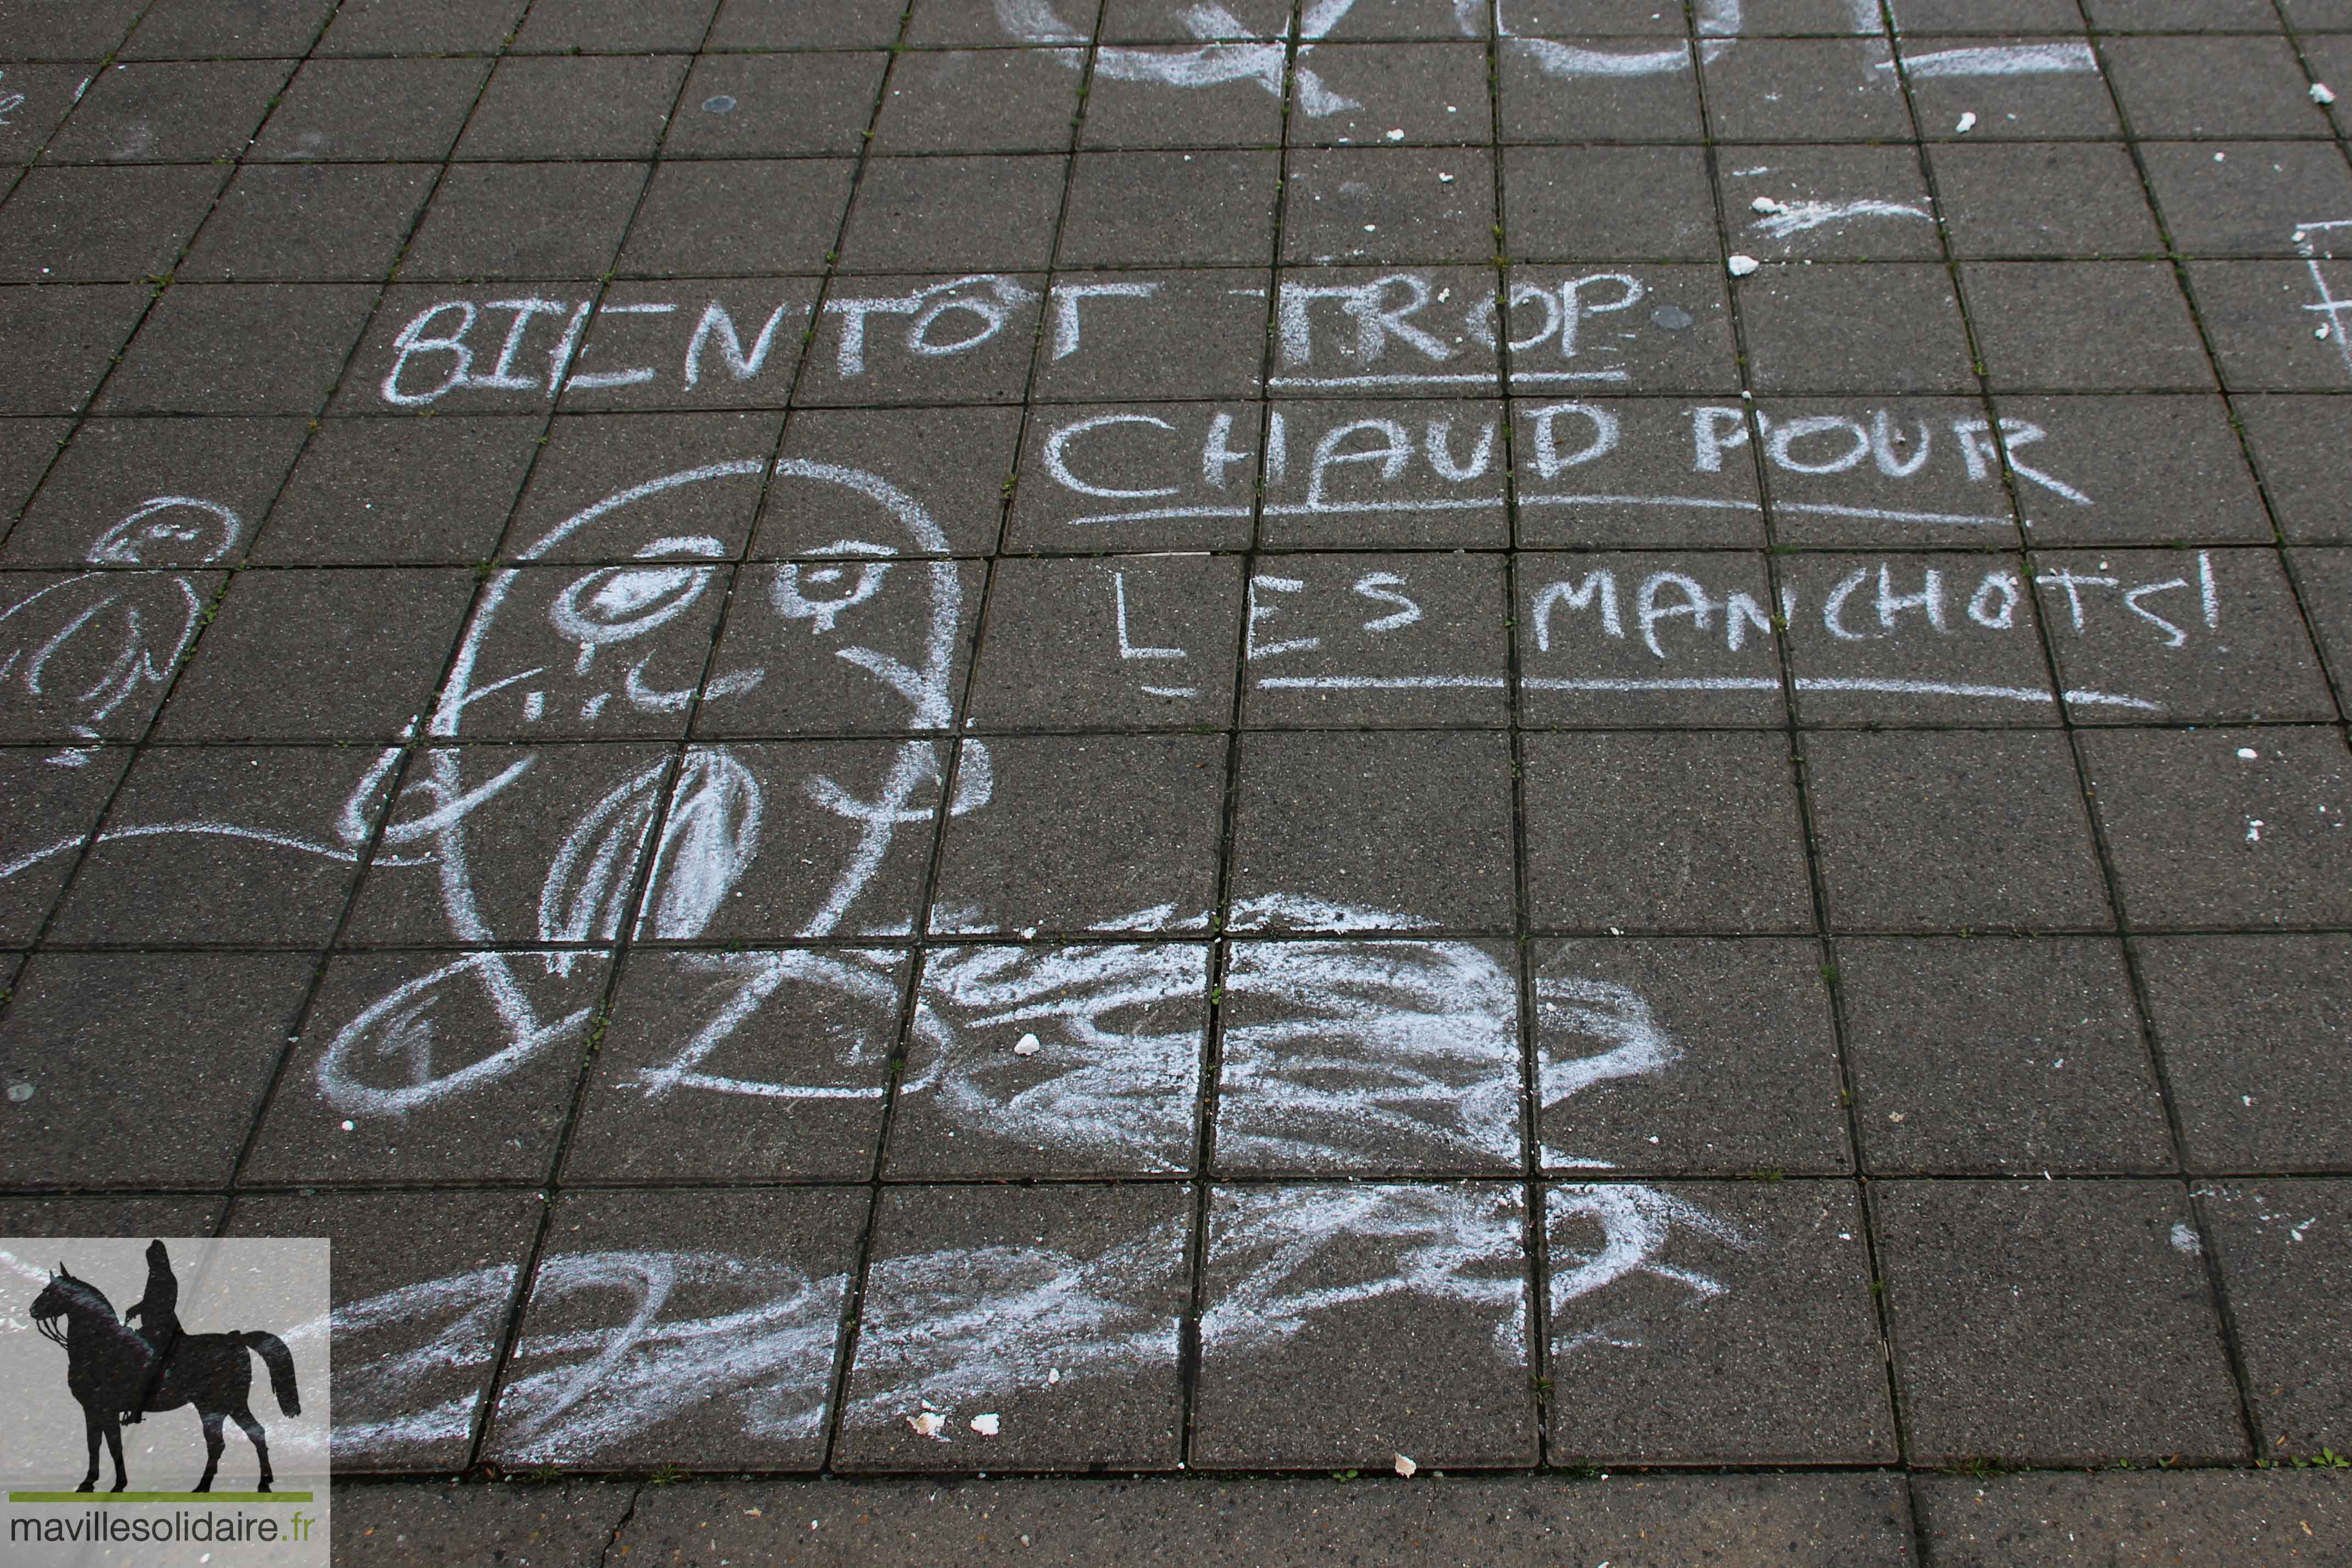 BIENTÔT TROP
CHAUD POUR
LES MANCHOTS!
mavillesolidaire.fr